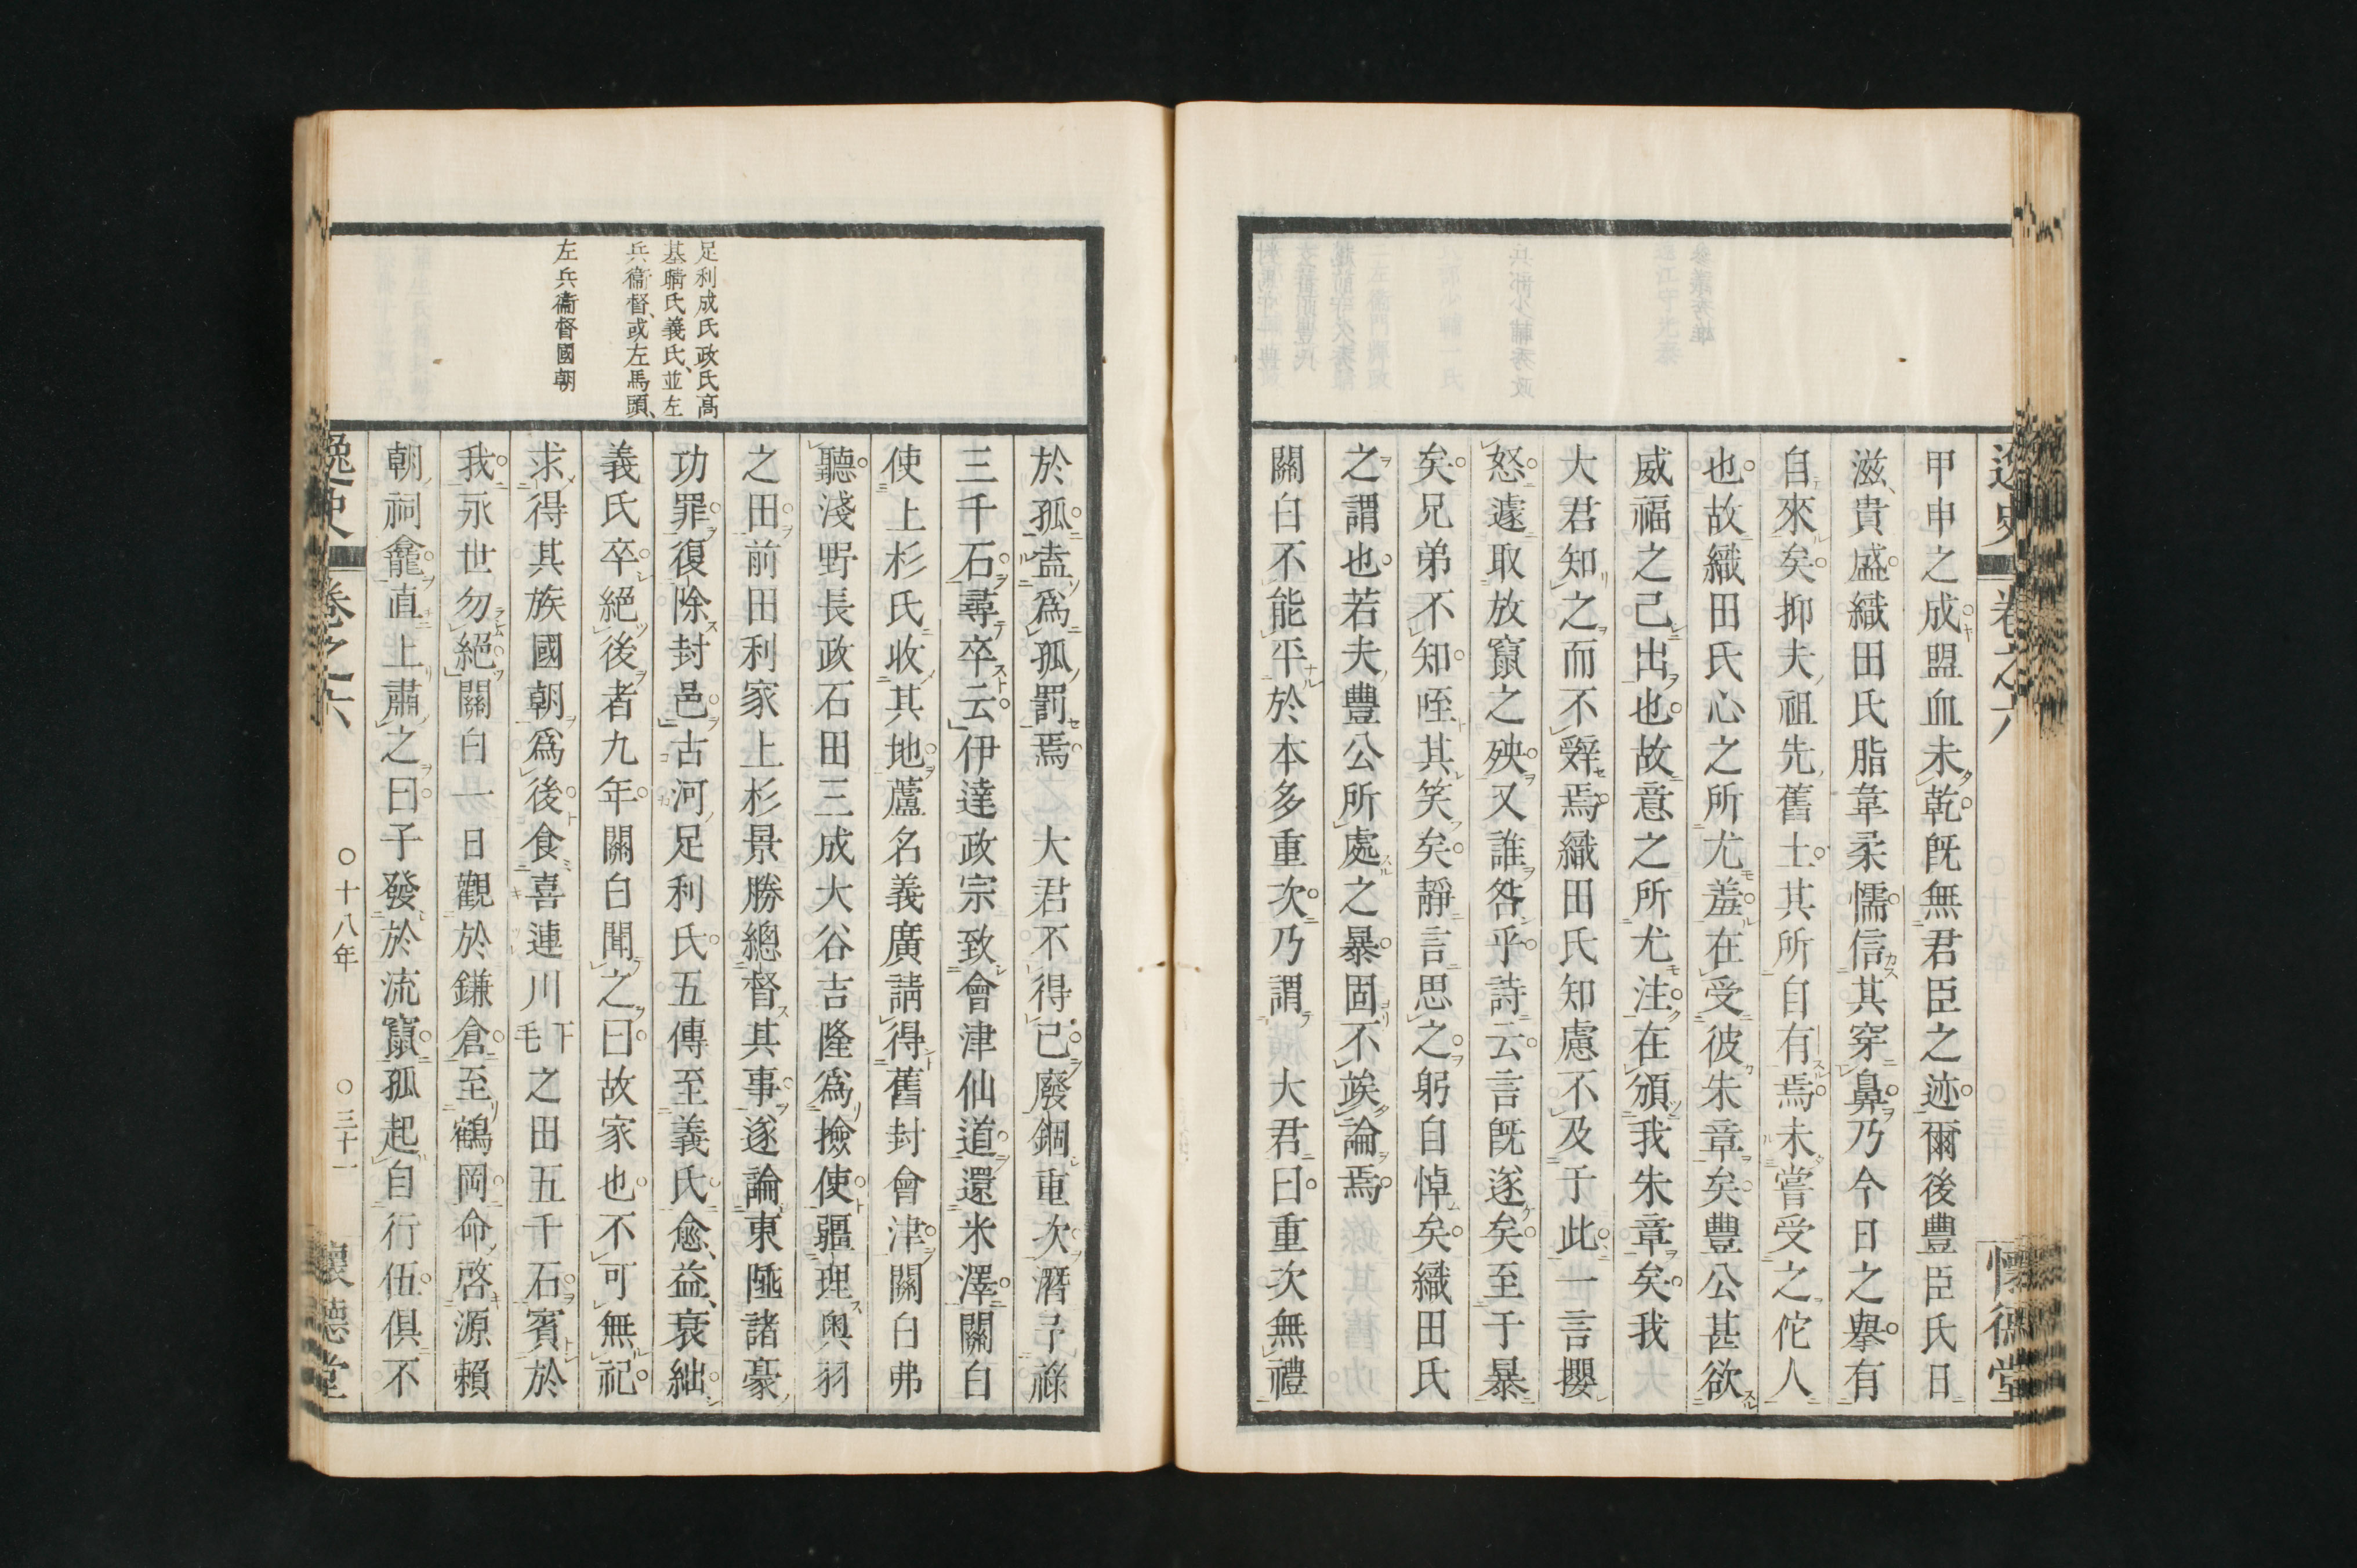 逸史 卷之六 懷德堂
甲申之成盟血未乾既無君臣之迹爾後豐臣氏日
滋貴盛織田氏脂韋柔懦信其穿鼻乃今日之擧有
自來矣抑夫祖先舊土其所自有焉未嘗受之佗人
也故織田氏心之所尤羞在受彼朱章矣豐公甚欲
威福之己出也故意之所尤注在頒我朱章矣我
大君知之而不辭焉織田氏知慮不及于此一言攖
怒遽取放竄之殃又誰咎乎詩云言既遂矣至于暴
矣兄弟不知咥其笑矣靜言思之躬自悼矣織田氏
之謂也若夫豐公所處之暴固不竢論焉
關白不能平於本多重次乃謂 大君曰重次無禮
足利成氏政氏高
基晴氏義氏、並左
兵衞督、或左馬頭、
左兵衞督國朝
於孤盍爲孤罰焉 大君不得已廢錮重次潛予祿
三千石尋卒云伊達政宗致會津仙道還米澤關白
使上杉氏收其地蘆名義廣請得舊封會津關白弗
聽淺野長政石田三成大谷吉隆爲撿使疆理奧羽
之田前田利家上杉景勝總督其事遂論東陲諸豪
功罪復除封邑古河足利氏五傳至義氏愈益衰絀
義氏卒絕後者九年關白聞之曰故家也不可無祀
求得其族國朝爲後食喜連川下毛之田五千石賓於
我永世勿絕關白一日觀於鎌倉至鶴岡命啓源賴
朝祠龕直上肅之曰子發於流竄孤起自行伍俱不
逸史 卷之六 〇十八年 〇三十一 懷德堂